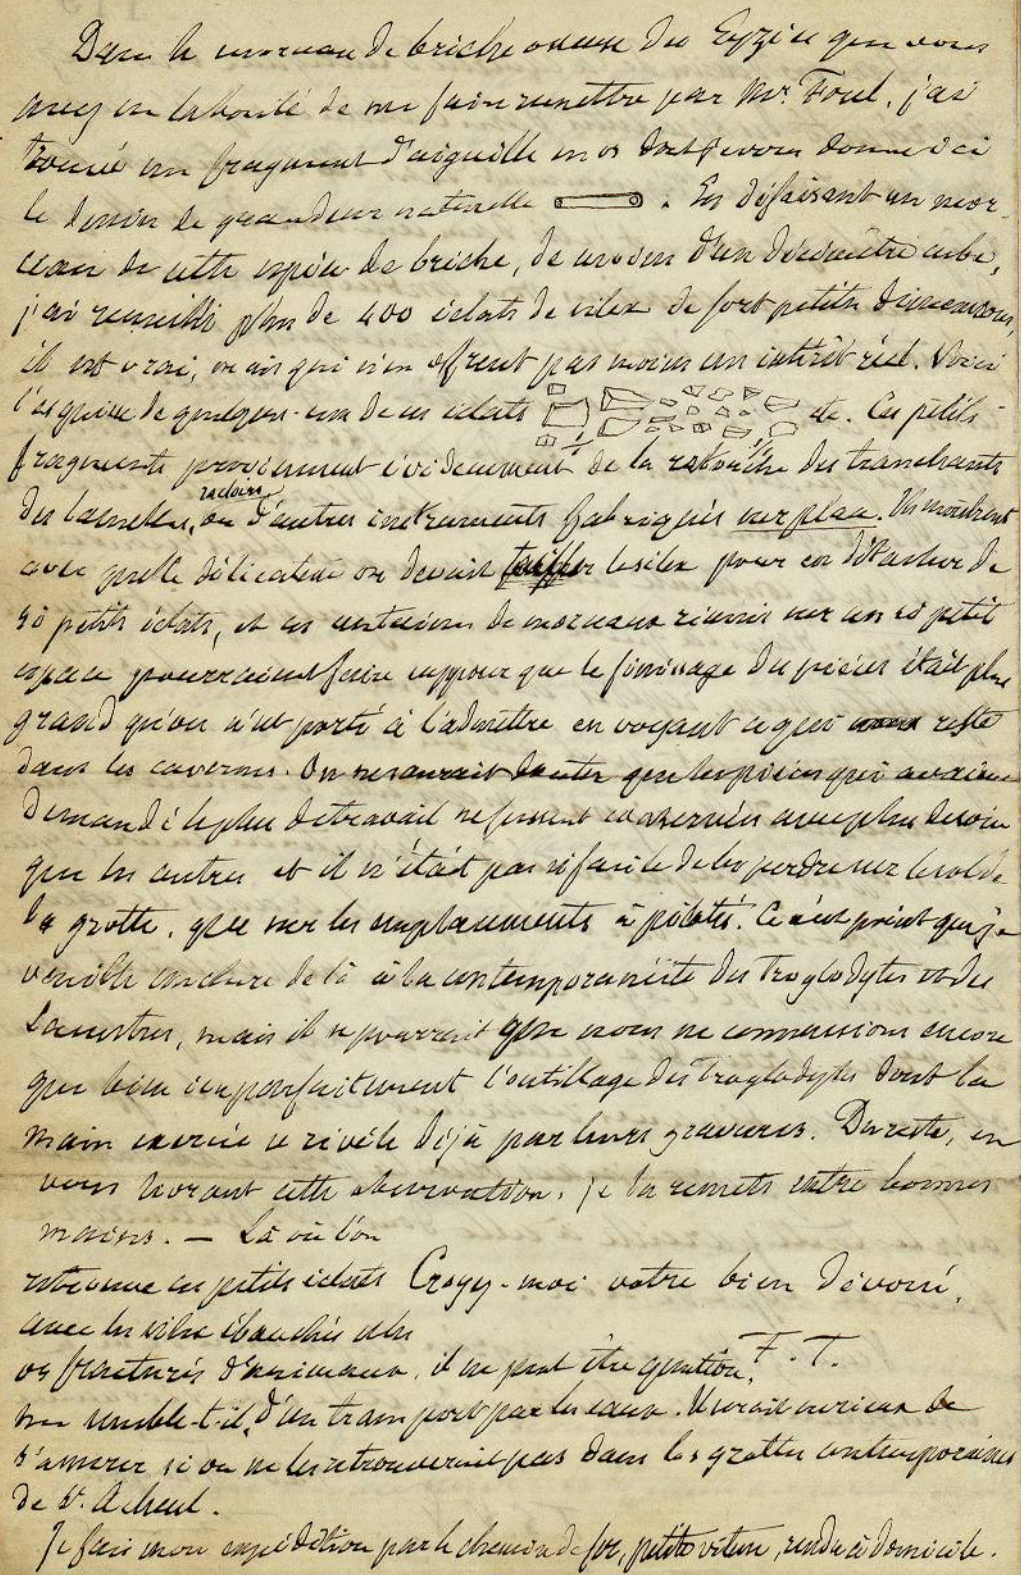 Dans le morceau de brèche osseuse des Eyzies que vous
avez eu la bonté de me faire remettre par Mr. Forel, j'ai
trouvé un fragment d'aiguille en os dont je vous donne ici
le dessin de grandeur naturelle . En défaisant un mor-
ceau de cette espèce de brèche, de moins d'un décimètre cube,
j'ai recueilli plus de 400 éclats de silex de fort petites dimensions,
il est vrai, mais qui n'en offrent pas moins un intérêt réel. Voici
l'esquisse de quelques-uns de ces éclats etc. Ces petits
fragments proviennent évidemment de la retouche des tranchants
des lamelles, racloirs ou d'autres instruments fabriqués sur place. Ils montrent
avec quelle délicatesse on devait tailler le silex pour en détacher de
si petits éclats, et ces centaines de morceaux réunis sur un si petit
espace pourraient faire supposer que le finissage des pièces était plus
grand qu'on n'est porté à l'admettre en voyant ce qui nous reste
dans les cavernes. On ne saurait douter que les pièces qui avaient
demandé le plus de travail ne fussent conservées avec plus de soin
que les autres et il n'était pas si facile de les perdre sur le sol de
la grotte, que sur les emplacements à pilotis. Ce n'est point que je
veuille conclure de là à la contemporanéité des Troglodytes et des
Lacustres, mais il se pourrait que nous ne connussions encore
que bien imparfaitement l'outillage des Troglodytes dont la
main exercée se révèle déjà par leurs gravures. Du reste, en
vous livrant cette observation, je la remets entre bonnes
mains. — Là où l'on
retrouve ces petits éclats Croyez-moi votre bien dévoué,
avec les silex ébauchés et les
os fracturés d'animaux, il ne peut être question, F. T.
me semble-t-il, d'un transport par les eaux. Il serait curieux de
s'assurer si on ne les retrouverait pas dans les grottes contemporaines
de St. Acheul.
Je fais mon expédition par le chemin de fer, petite vitesse, rendu à domicile.